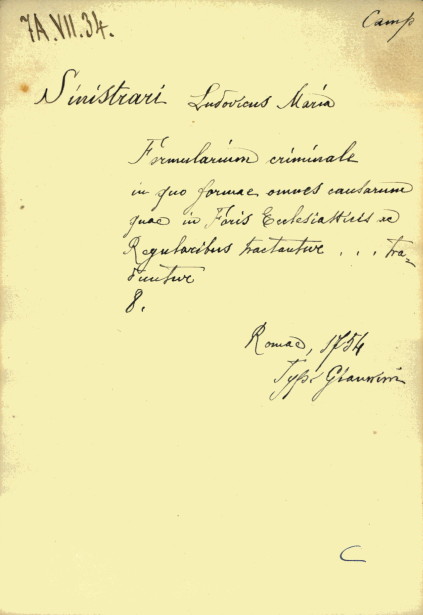 7A.VII.34.
Camp
Sinistrari Ludovicus Maria
Formularium criminale
in quo formae omnes causarum
quae in Foris Ecclesiasticis ac
Regularibus tractantur . . . tra-
duntur
8.
Romae, 1754
Typ. Giannini
C